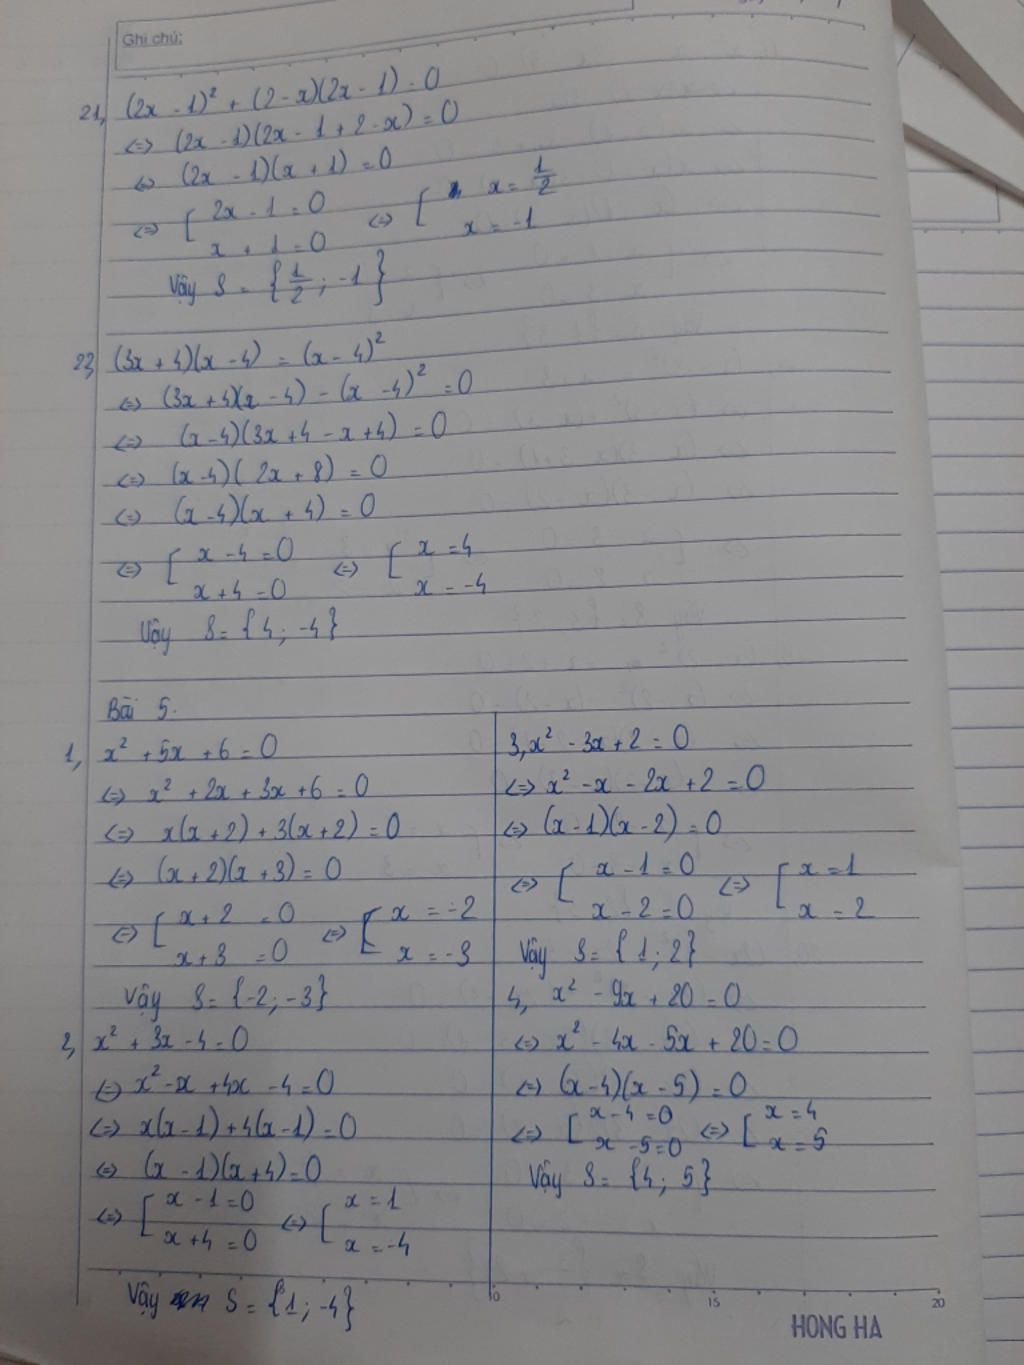 Ghi chú:
21, (2x - 1)² + (2 - x)(2x - 1) = 0
<=> (2x - 1)(2x - 1 + 2 - x) = 0
<=> (2x - 1)(x + 1) = 0
<=> [ 2x - 1 = 0 <=> [ x = 1/2
x + 1 = 0 x = -1
Vậy S = { 1/2 ; -1 }
22, (3x + 4)(x - 4) = (x - 4)²
<=> (3x + 4)(x - 4) - (x - 4)² = 0
<=> (x - 4)(3x + 4 - x + 4) = 0
<=> (x - 4)(2x + 8) = 0
<=> (x - 4)(x + 4) = 0
<=> [ x - 4 = 0 <=> [ x = 4
x + 4 = 0 x = -4
Vậy S = {4; -4}
Bài 5.
1, x² + 5x + 6 = 0
<=> x² + 2x + 3x + 6 = 0
<=> x(x + 2) + 3(x + 2) = 0
<=> (x + 2)(x + 3) = 0
<=> [ x + 2 = 0 <=> [ x = -2
x + 3 = 0 x = -3
Vậy S = {-2; -3}
2, x² + 3x - 4 = 0
<=> x² - x + 4x - 4 = 0
<=> x(x - 1) + 4(x - 1) = 0
<=> (x - 1)(x + 4) = 0
<=> [ x - 1 = 0 <=> [ x = 1
x + 4 = 0 x = -4
Vậy S = {1; -4}
3, x² - 3x + 2 = 0
<=> x² - x - 2x + 2 = 0
<=> (x - 1)(x - 2) = 0
<=> [ x - 1 = 0 <=> [ x = 1
x - 2 = 0 x = 2
Vậy S = {1; 2}
4, x² - 9x + 20 = 0
<=> x² - 4x - 5x + 20 = 0
<=> (x - 4)(x - 5) = 0
<=> [ x - 4 = 0 <=> [ x = 4
x - 5 = 0 x = 5
Vậy S = {4; 5}
10 15 20
HONG HA